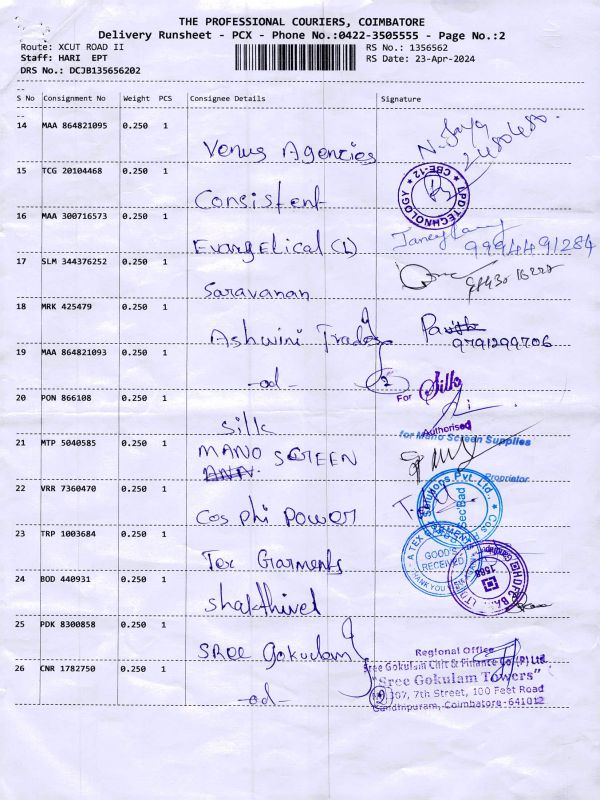 THE PROFESSIONAL COURIERS, COIMBATORE
Delivery Runsheet - PCX - Phone No.:0422-3505555 - Page No.:2
Route: XCUT ROAD II
RS No.: 1356562
Staff: HARI EPT
RS Date: 23-Apr-2024
DRS No.: DCJB135656202
S No Consignment No Weight PCS Consignee Details Signature
14 MAA 864821095 0.250 1 Venus Agencies
2480480
15 TCG 20104468 0.250 1 Consistent
APD TECHNOLOGY ★ CBE-12 ★
16 MAA 300716573 0.250 1 Evangelical (L)
9994491284
17 SLM 344376252 0.250 1 Saravanan
18 MRK 425479 0.250 1 Ashwini Trades
9791299706
19 MAA 864821093 0.250 1 -do-
2
20 PON 866108 0.250 1 Silk
For Silk
Authorised
21 MTP 5040585 0.250 1 MANO SCREEN
for Mano Screen Supplies
Proprietor
22 VRR 7360470 0.250 1 Cos phi power
Solutions Pvt.Ltd. ★ Cos
Sec'Bad
23 TRP 1003684 0.250 1 Tex Garments
A TEX
GOOD'S
RECEIVED
THANK YOU
24 BOD 440931 0.250 1 Shakthivel
HDFC BANK LTD
1568
25 PDK 8300858 0.250 1 SREE Gokulam
Regional Office
Sree Gokulam Chit & Finance Co.(P) Ltd.
"Sree Gokulam Towers"
26 CNR 1782750 0.250 1 -do-
2
307, 7th Street, 100 Feet Road
Gandhipuram, Coimbatore-641012